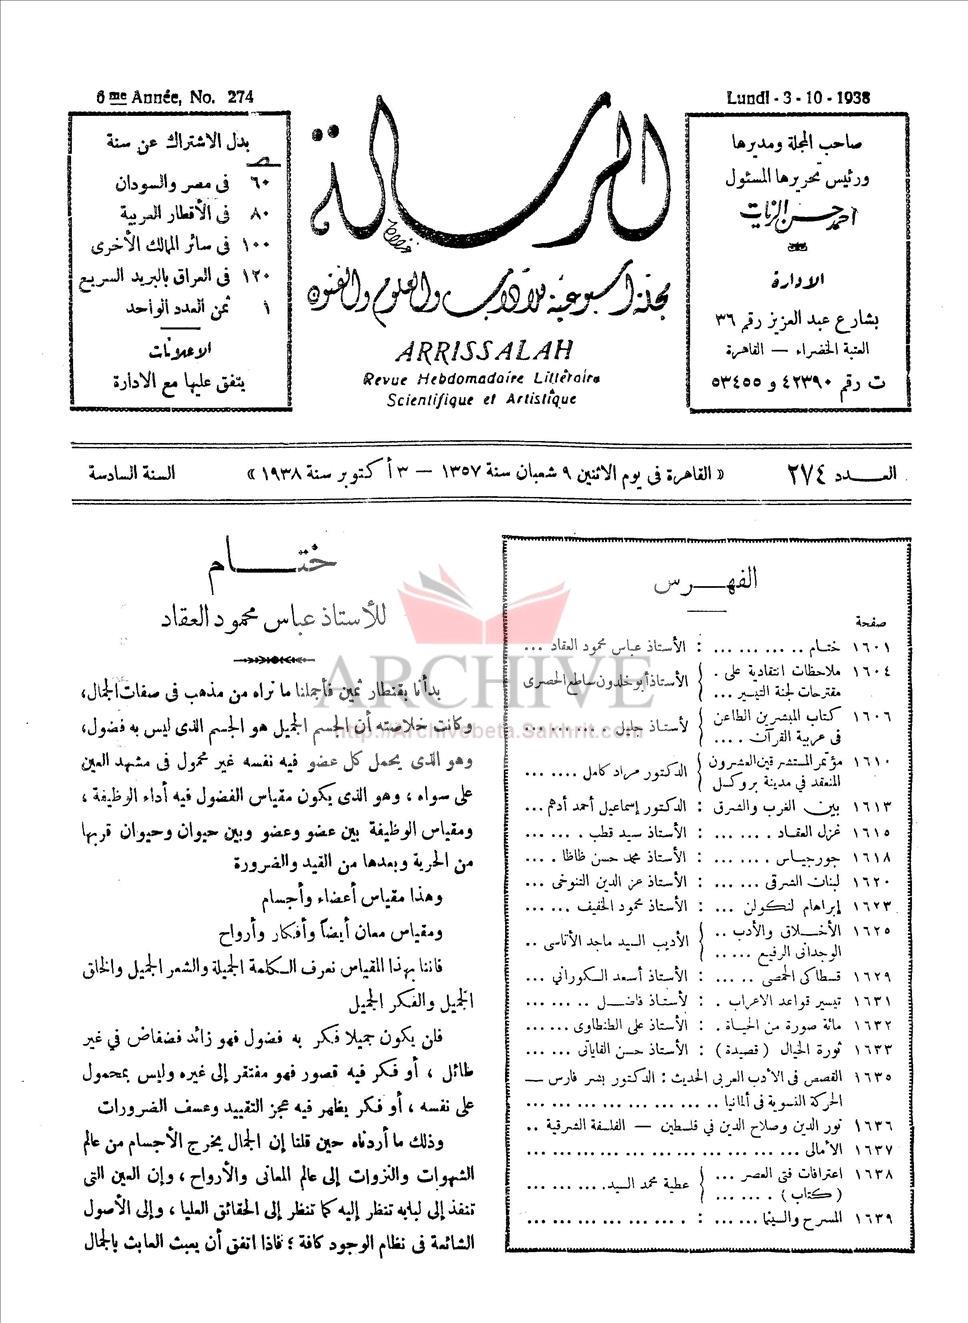 6me Année, No. 274
Lundi - 3 - 10 - 1938
صاحب المجلة ومديرها
ورئيس تحريرها المسئول
أحمد حسن الزيات
الادارة
بشارع عبد العزيز رقم ٣٦
العتبة الخضراء — القاهرة
ت رقم ٤٢٣٩٠ و ٥٣٤٥٥
الرسالة
مجلة أسبوعية للآداب والعلوم والفنون
ARRISSALAH
Revue Hebdomadaire Littéraire
Scientifique et Artistique
بدل الاشتراك عن سنة
٦٠ فى مصر والسودان
٨٠ فى الأقطار العربية
١٠٠ فى سائر الممالك الأخرى
١٢٠ فى العراق بالبريد السريع
١ ثمن العدد الواحد
الاعلانات
يتفق عليها مع الادارة
العـــدد ٢٧٤
« القاهرة فى يوم الاثنين ٩ شعبان سنة ١٣٥٧ — ٣ أكتوبر سنة ١٩٣٨ »
السنة السادسة
الفهـــرس
صفحة
١٦٠١ ختـام .. ... ... ... : الأستاذ عباس محمود العقاد ...
١٦٠٤ ملاحظات انتقادية على .
مقترحات لجنة التيسير ... } الأستاذ أبو خلدون ساطع الحصرى
١٦٠٦ كتاب المبشرين الطاعن
فى عربية القرآن . ... } لأستاذ جليل . ... ... ... ...
١٦١٠ مؤتمر المستشرقين العشرون
المنعقد في مدينة بروكسل } الدكتور مراد كامل .... ...
١٦١٣ بين الغرب والشرق : الدكتور إسماعيل أحمد أدهم ...
١٦١٥ غزل العقـاد . ... ... : الأستاذ سيد قطب . ... ...
١٦١٨ جورجيـاس . ... ... : الأستاذ محمد حسن ظاظا . ...
١٦٢٠ لبنات الشرقى ... ... : الأستاذ عز الدين التنوخى ...
١٦٢٣ إبراهام لنكولن ... : الأستاذ محمود الخفيف ... ...
١٦٢٥ الأخــلاق والأدب ..
الوجدانى الرفيع ... .. } الأديب السيد ماجد الأتاسى ..
١٦٢٩ قسطاكى الحمصى .. ... : الأستاذ أسعد الكوراني ... ...
١٦٣١ تيسير قواعد الاعراب . : لأستاذ فاضـــل .. ... ...
١٦٣٢ مائة صورة من الحيـاة . : الأستاذ على الطنطاوى ... ...
١٦٣٣ ثورة الخيال ( قصيدة ) : الأستاذ حسن القاياتى ... ...
١٦٣٥ القصص فى الأدب العربى الحديث : الدكتور بشر فارس —
الحركة النسوية فى ألمانيا .. ... ... ... ... ... ... ...
١٦٣٦ نور الدين وصلاح الدين في فلسطين — الفلسفة الشرقية ..
١٦٣٧ الأمالى ... ... ... ... ... ... ... ... ... ...
١٦٣٨ اعترافات فتى العصر ...
( كتاب ) . ... ... } عطية محمد السيد. ... ... ...
١٦٣٩ المسرح والسينما ... ... : . ... ... ... ... ... ...
ختـــــام
للأستاذ عباس محمود العقاد
بدأنا بقنطار ثمين فأجملنا ما نراه من مذهب فى صفات الجمال،
وكانت خلاصته أن الجسم الجميل هو الجسم الذى ليس به فضول،
وهو الذى يحمل كل عضو فيه نفسه غير محمول فى مشهد العين
على سواه ، وهو الذى يكون مقياس الفضول فيه أداء الوظيفة ،
ومقياس الوظيفة بين عضو وعضو وبين حيوان وحيوان قربها
من الحرية وبعدها من القيد والضرورة
وهذا مقياس أعضاء وأجسام
ومقياس معان أيضاً وأفكار وأرواح
فاننا بهذا المقياس نعرف الكلمة الجميلة والشعر الجميل والخلق
الجميل والفكر الجميل
فلن يكون جميلا فكر به فضول فهو زائد فضفاض في غير
طائل ، أو فكر فيه قصور فهو مفتقر إلى غيره وليس بمحمول
على نفسه ، أو فكر يظهر فيه عجز التقييد وعسف الضرورات
وذلك ما أردناه حين قلنا إن الجمال يخرج الأجسام من عالم
الشهوات والنزوات إلى عالم المعانى والأرواح ، وإن العين التى
تنفذ إلى لبابه تنظر إليه كما تنظر إلى الحقائق العليا ، وإلى الأصول
الشائعة فى نظام الوجود كافة ؛ فاذا اتفق أن يعبث العابث بالجمال
ARCHIVE
http://Archivebeta.Sakhrit.com